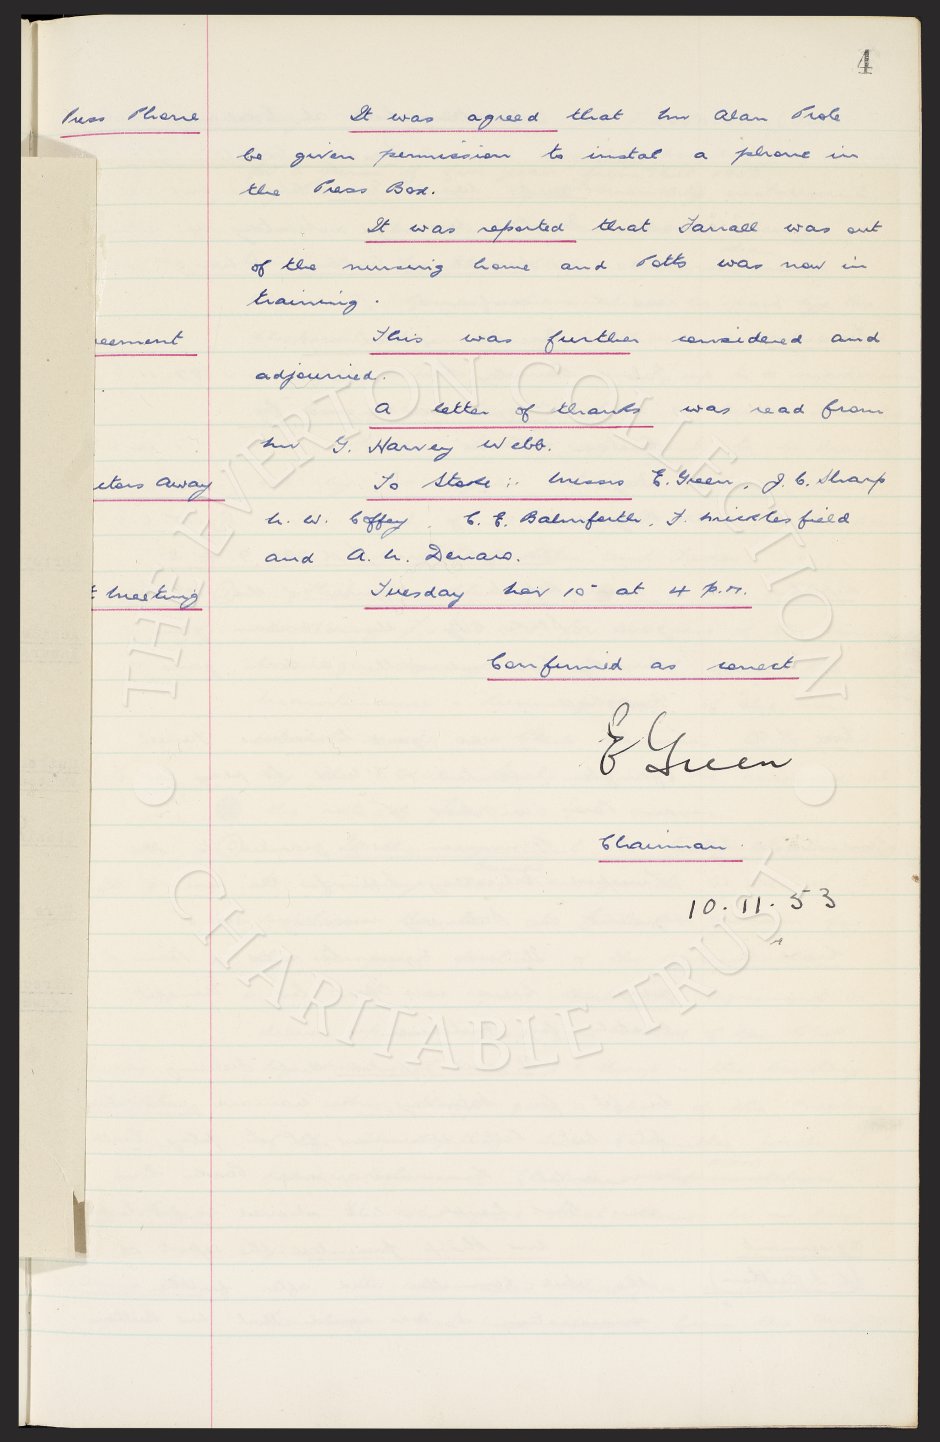 4
Press Phone It was agreed that Mr Alan Prole
be given permission to instal a phone in
the Press Box.
It was reported that Farrall was out
of the nursing home and Potts was now in
training.
reement This was further considered and
adjourned.
A letter of thanks was read from
Mr G. Harvey Webb.
ctors Away To Stoke :- Messrs E. Green, J. C. Sharp
N. W. Coffey, C. E. Balmforth, F. Micklesfield
and A. N. Denaro.
t Meeting Tuesday Nov 10 at 4 p.m.
Confirmed as correct
E Green
Chairman
10.11.53
THE EVERTON COLLECTION
CHARITABLE TRUST